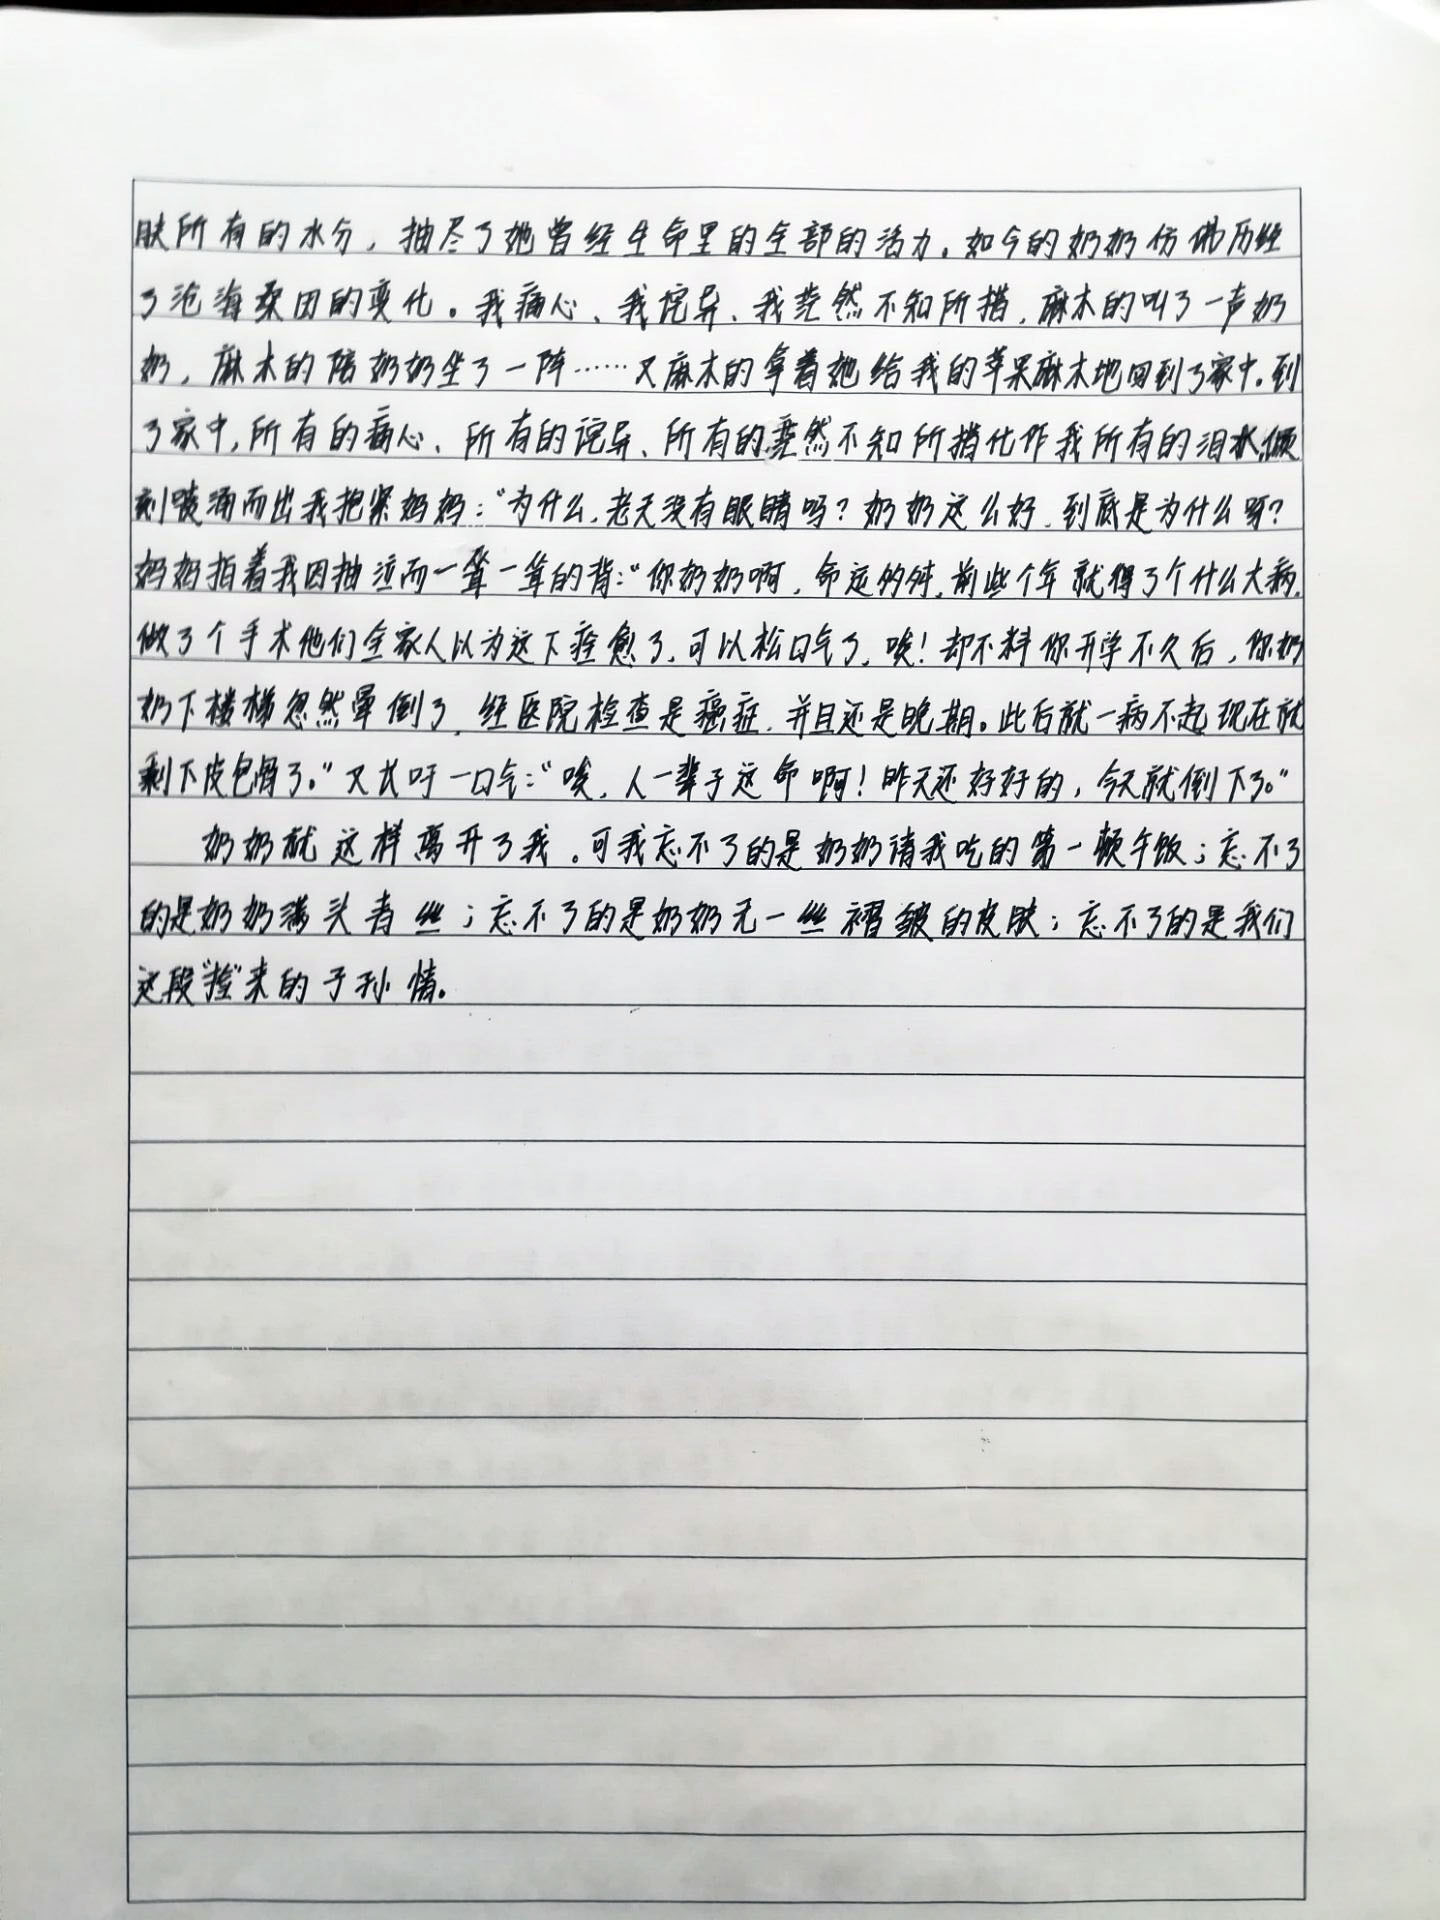 肤所有的水分，抽尽了她曾经生命里的全部的活力。如今的奶奶仿佛历经
了沧海桑田的变化。我痛心、我诧异、我茫然不知所措，麻木的叫了一声奶
奶，麻木的陪奶奶坐了一阵……又麻木的拿着她给我的苹果麻木地回到了家中。到
了家中，所有的痛心、所有的诧异、所有的茫然不知所措化作我所有的泪水，顷
刻喷涌而出我抱紧妈妈：“为什么，老天没有眼睛吗？奶奶这么好，到底是为什么呀？
妈妈拍着我因抽泣而一耸一耸的背：“你奶奶啊，命运多舛，前些个年就得了个什么大病，
做了个手术他们全家人以为这下痊愈了，可以松口气了，唉！却不料你开学不久后，你奶
奶下楼梯忽然晕倒了，经医院检查是癌症，并且还是晚期。此后就一病不起现在就
剩下皮包骨了。”又长吁一口气：“唉，人一辈子这命啊！昨天还好好的，今天就倒下了。”
奶奶就这样离开了我。可我忘不了的是奶奶请我吃的第一顿午饭；忘不了
的是奶奶满头青丝；忘不了的是奶奶无一丝褶皱的皮肤；忘不了的是我们
这段“捡”来的子孙情。